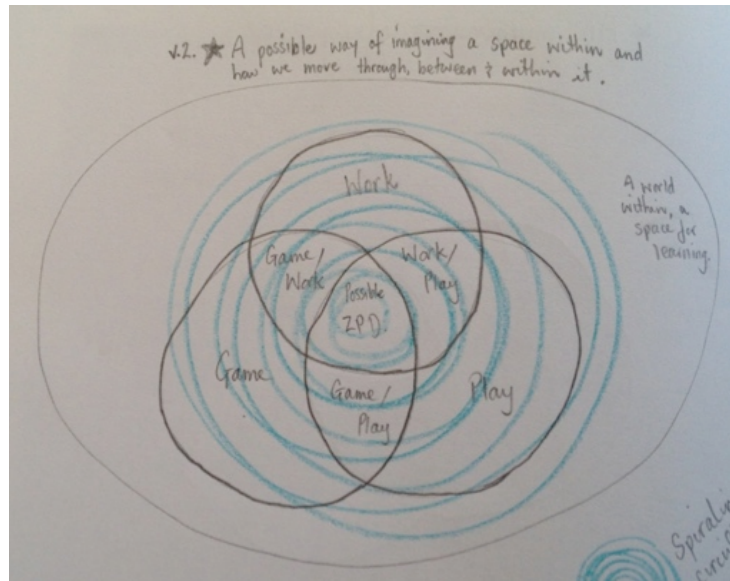 v.2. ★ A possible way of imagining a space within and
how we move through, between & within it.
Work
A world
within, a
space for
learning.
Game/
Work
Work/
Play
Possible
ZPD.
Game
Game/
Play
Play